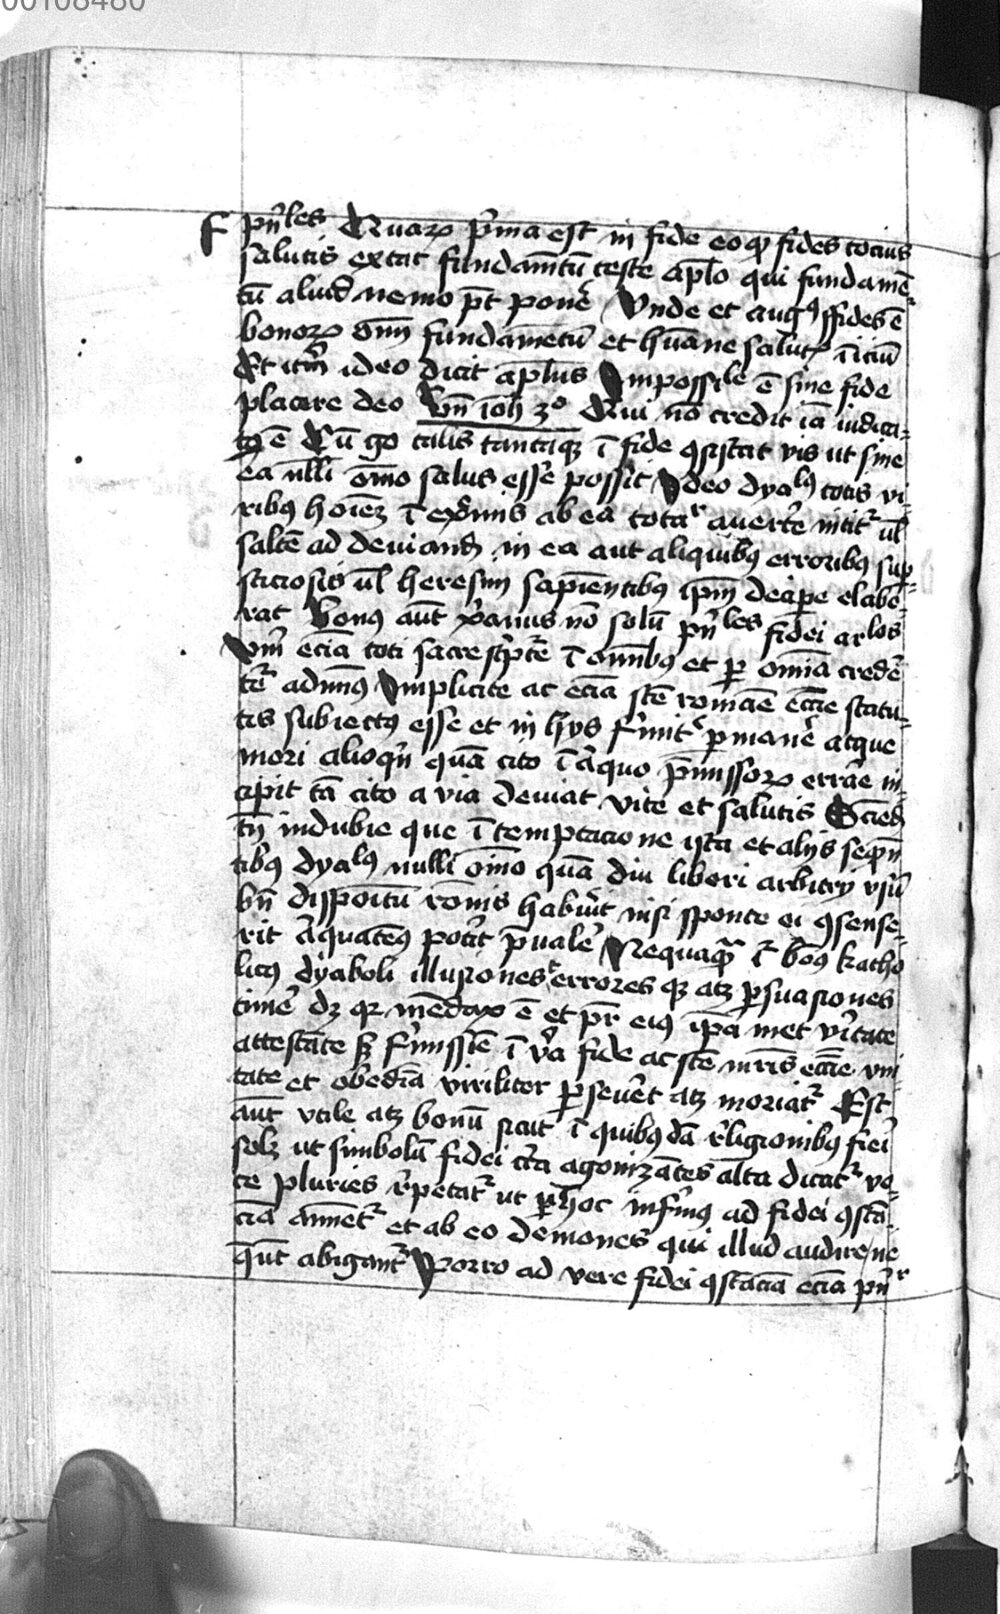 00108480
F pn̄les Quarꝝ p̄ma est in fide eo qꝫ fides tocius
salutis extat fundam̄tū teste apl̄o qui fundamē
tū aliud nemo pt̄ ponē Vnde et augꝰ ffides ē
bonoꝝ om̄ fundamētū et hūane salutꝭ īiciū
Et itm̄ ideo dicit ap̄lus Impossile ē sine fide
placere deo Vn̄ ioh̄ 3º Qui nō credit iā iudica
tꝰ ē Cū gͦ talis tantaqꝫ ī fide ꝯsistat vis ut sine
ea nlli om̄o salus esse possit Ideo dyalꝰ totis vi
ribꝰ hoīeꝫ ī ext̄mis ab ea totar auert̄e nitit̄ ul̄
saltē ad deuiand̄ in ea aut aliquibꝰ erroribꝰ suꝑ
sticiosis ul̄ heresim sapientibꝰ ip̄m deciꝑe elabo
rat Bonꝰ aūt xp̄ianus nō solū pn̄les fidei arlos
Vm̄ eciā toti sacre sc̄pt̄e ī om̄ibꝰ et ꝑ om̄ia credē
tē admīꝰ Implicite ac eciā stē romāe ecc̄ie statu
tis subiectꝰ esse et in hijs f̄mit̄ ꝑmanē atque
mori alioqn̄ quā cito ī āquo p̄missoꝝ erraē in
cipit tā cito a via deuiat vite et salutis Sciēd
tn̄ indubie que ī temptacione ista et alijs seqn̄
tibꝰ dyalꝰ nulli om̄o quā diu liberi arbitrij vsū
bn̄ dispoītū rōnis habūit nisi sponte ei ꝯsense
rit āquatenꝰ pot̄it p̄ualē Nequaqꝫ ī bonꝰ katho
licꝰ dyaboli illusiones errores qꝫ atꝫ ꝑsuasiones
timē dꝫ qꝛ mēdax ē et pr̄ eiꝰ ip̄a met v̄itate
attestāte sꝫ f̄missīe ī v̄a fide ac stē mr̄is ecc̄ie vni
tate et obediā viriliter ꝑseūet atꝫ moriat̄ Est
aūt vtile atꝫ bonū sicut ī quibꝰdā r̄ligionibꝰ fiēi
solꝫ ut simbolū fidei cr̄a agonizātes alta dicat̄ vo
ce pluries r̄petat̄ ut ꝑ hoc inf̄mꝰ ad fidei ꝯstā
ciā aīmet̄ et ab eo demones qui illud audire ne
qūt abigant̄ Porro ad vere fidei ꝯstāciā eciā pn̄r